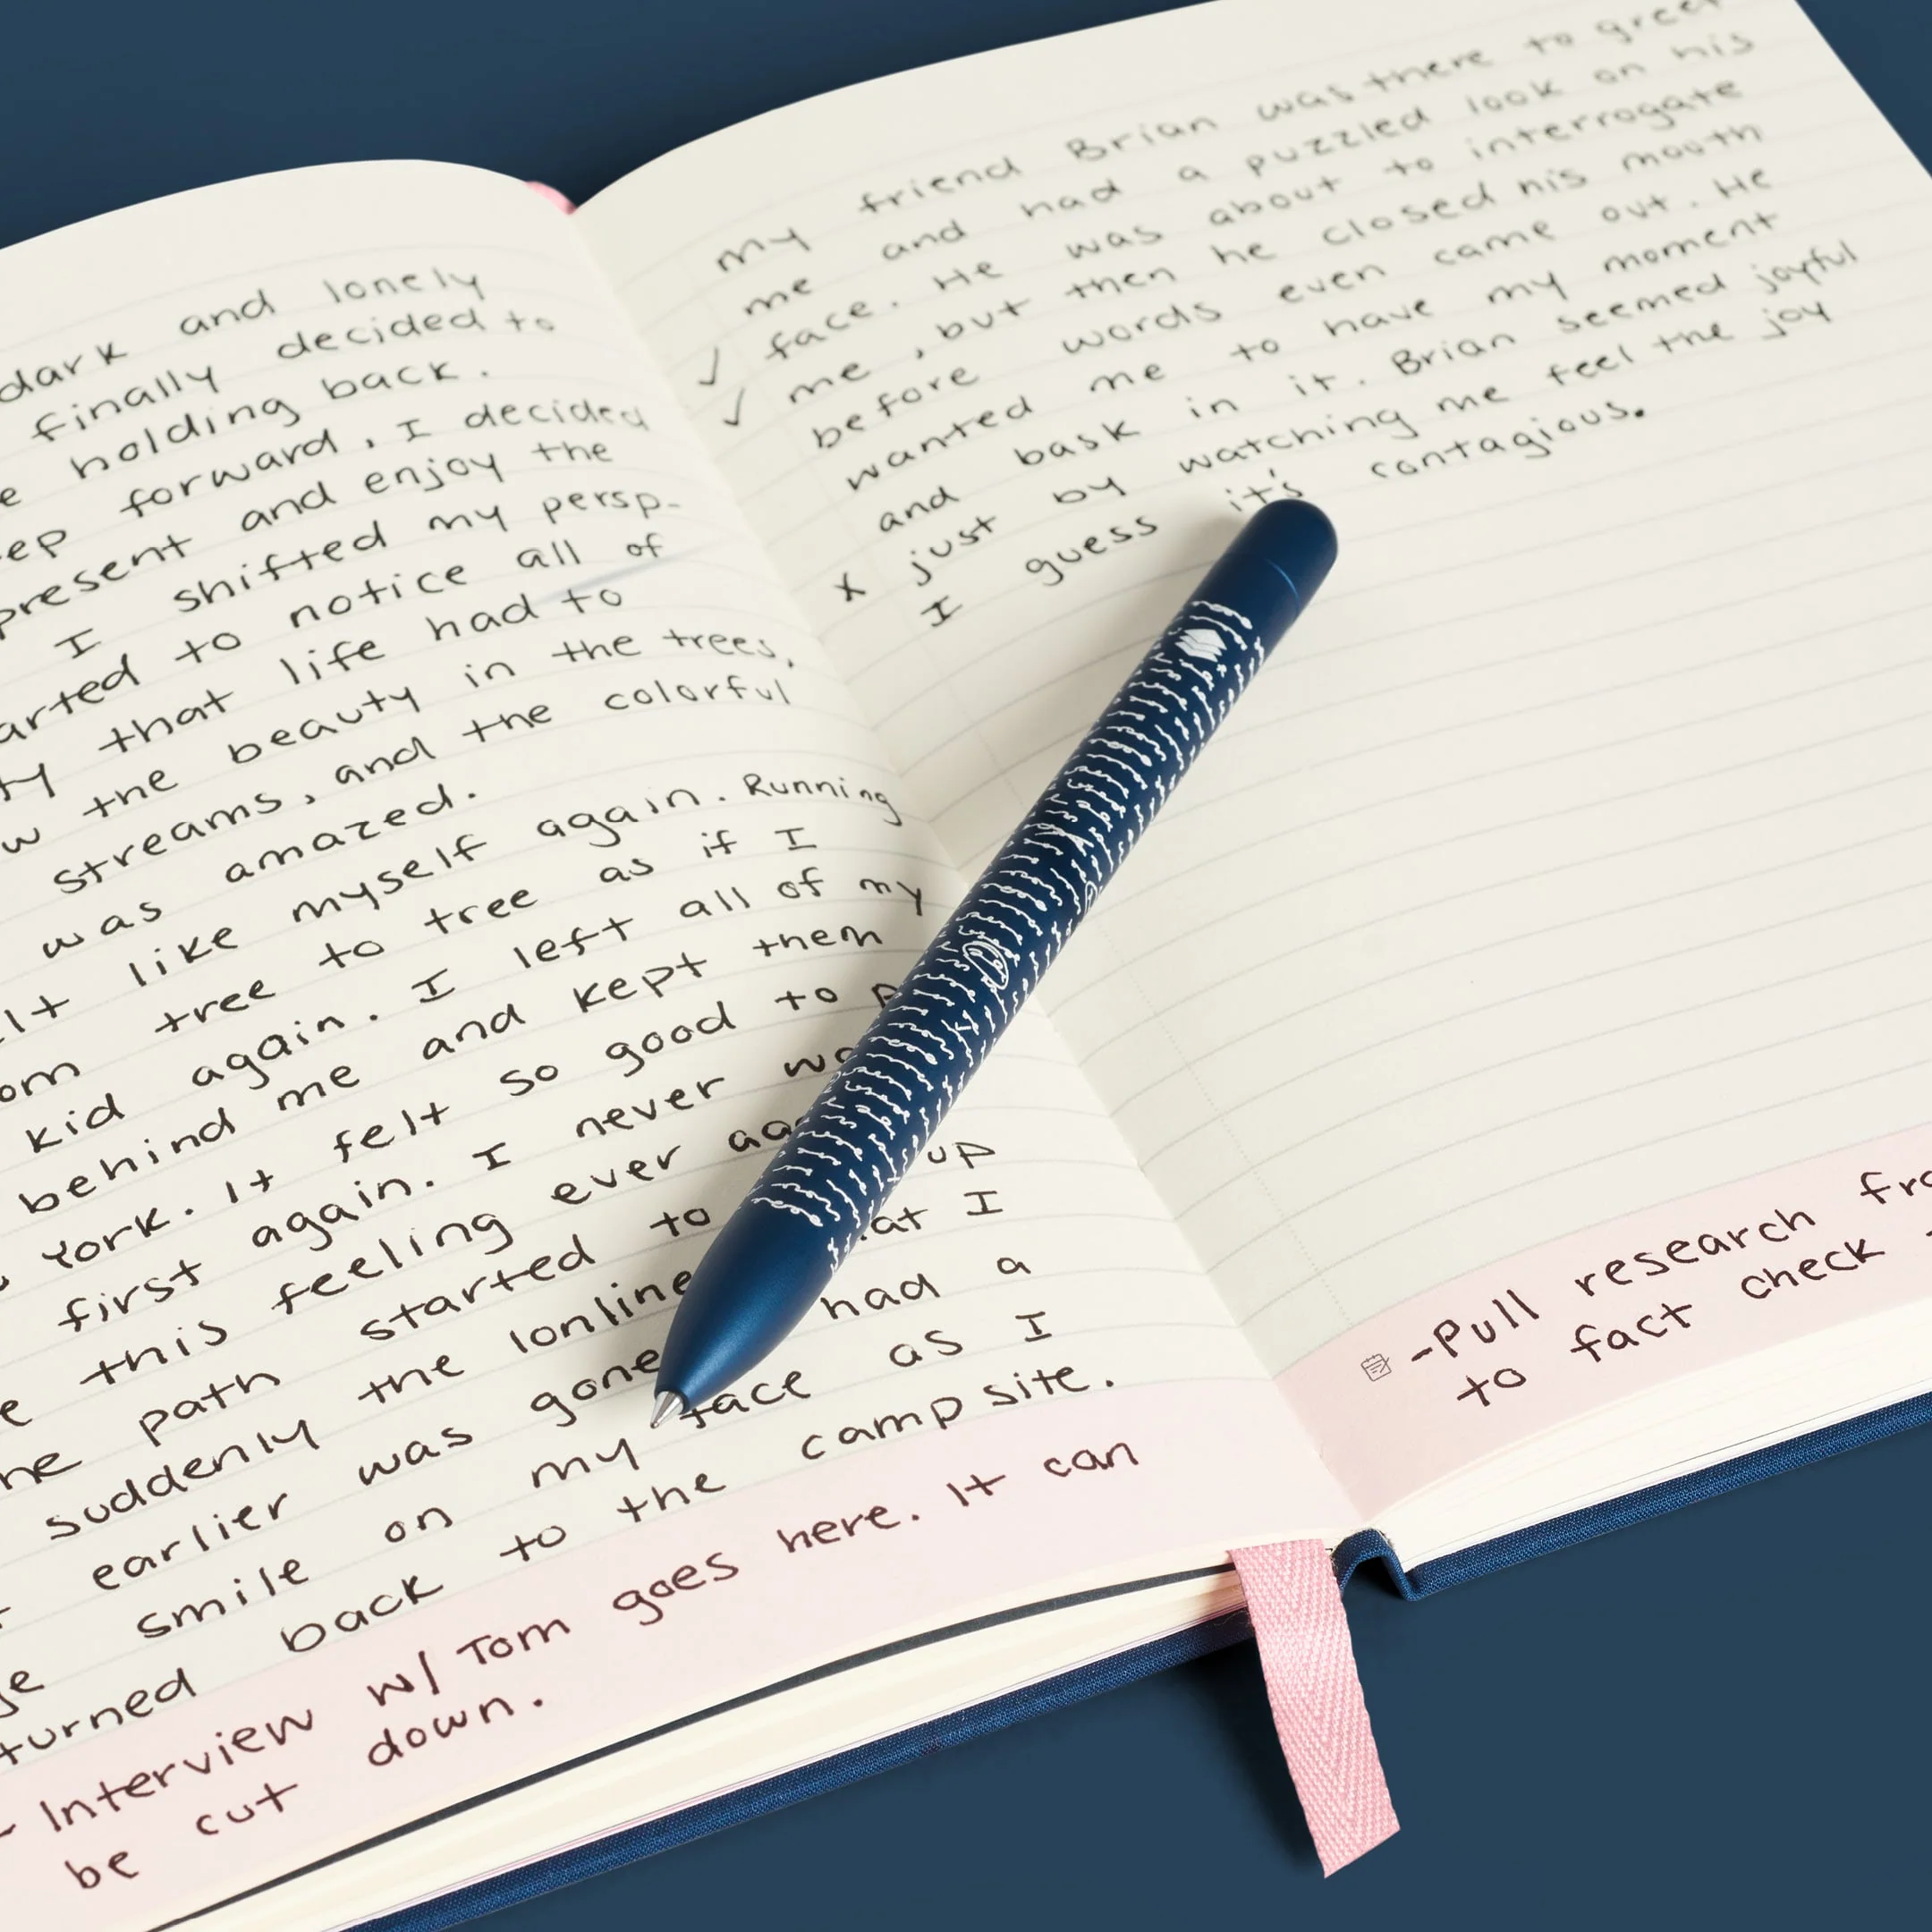 dark and lonely
finally decided to
holding back.
forward, I decided
present and enjoy the
I shifted my persp-
to notice all of
that life had to
the beauty in the trees,
streams, and the colorful
was amazed.
like myself again. Running
tree to tree as if I
kid again. I left all of my
behind me and kept them
York. It felt so good to
first again. I never
this feeling ever
path started to up
suddenly the lonline at I
earlier was gone had a
smile on my face as I
turned back to the camp site.
- Interview w/ Tom goes here. It can
be cut down.
my friend Brian was there to greet
me and had a puzzled look on his
✓ face. He was about to interrogate
✓ me, but then he closed his mouth
before words even came out. He
wanted me to have my moment
and bask in it. Brian seemed joyful
X just by watching me feel the joy
I guess it's contagious.
-Pull research
to fact check